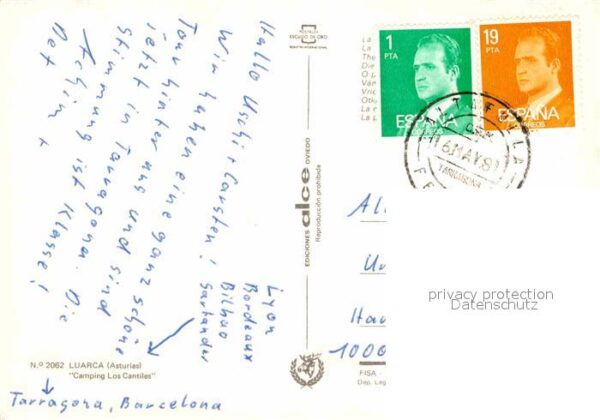 Hallo Uschi + Carsten!
Wir haben eine ganz schöne
Tour hinter uns und sind
jetzt in Tarragona. Die
Stimmung ist Klasse!
Achim +
Lyon
Bordeaux
Bilbao
Santander
N.º 2062 LUARCA (Asturias)
"Camping Los Cantiles"
Tarragona, Barcelona
ESCUDO DE ORO
EDICIONES alce OVIEDO
Reproducción prohibida
FISA
Dep. Leg
1 PTA
ESPAÑA
CORREOS
19 PTA
ESPAÑA
CORREOS
16 MAY 81
TARRAGONA
Al
Un
Hau
1000
privacy protection
Datenschutz